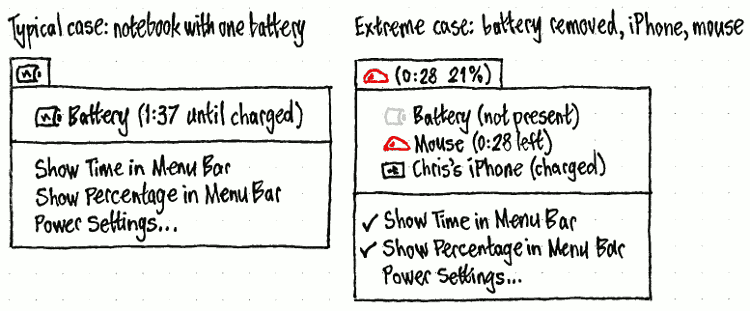 Typical case: notebook with one battery
Battery (1:37 until charged)
Show Time in Menu Bar
Show Percentage in Menu Bar
Power Settings...
Extreme case: battery removed, iPhone, mouse
(0:28 21%)
Battery (not present)
Mouse (0:28 left)
Chris's iPhone (charged)
✓ Show Time in Menu Bar
✓ Show Percentage in Menu Bar
Power Settings...